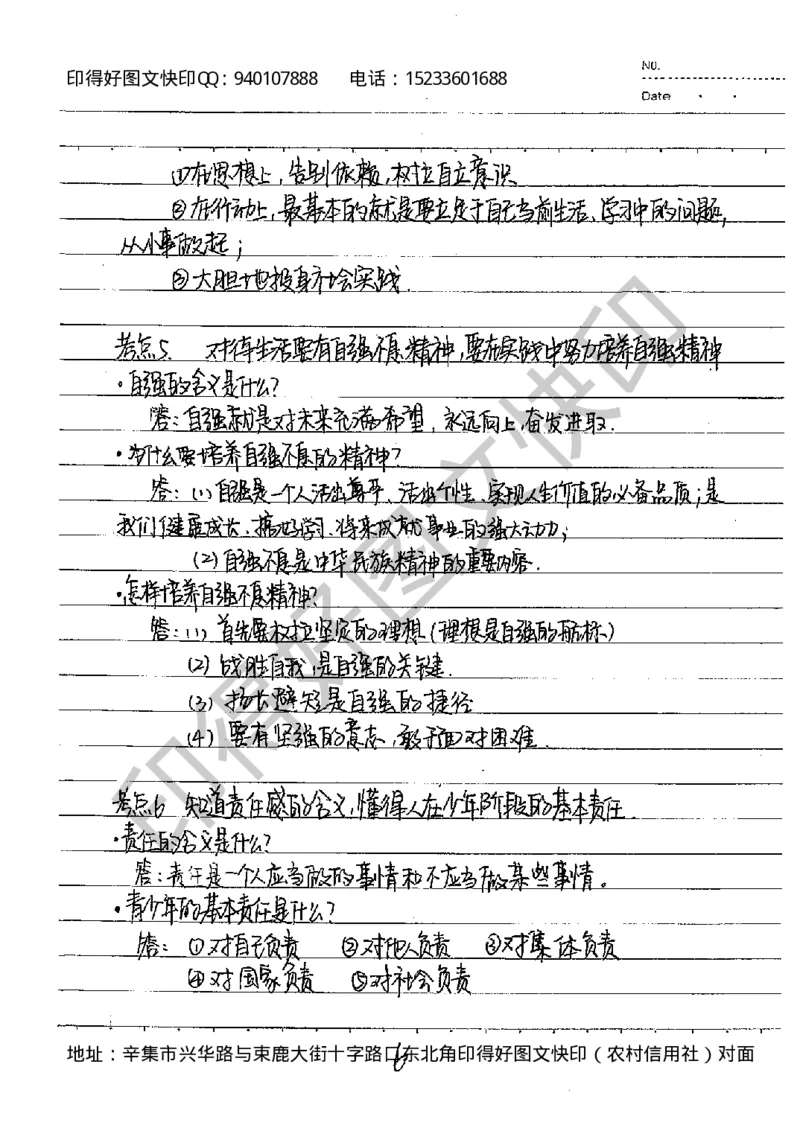 印得好图文快印QQ：940107888 电话：15233601688
No.
Date
①在思想上，告别依赖，树立自立意识
②在行动上，最基本的就是要立足于自己当前生活、学习中的问题，
从小事做起；
③大胆地投身社会实践.
考点5. 对待生活要有自强不息精神，要在实践中努力培养自强精神
·自强的含义是什么？
答：自强就是对未来充满希望，永远向上，奋发进取.
·为什么要培养自强不息的精神？
答：(1)自强是一个人活出尊严、活出个性、实现人生价值的必备品质；是
我们健康成长、搞好学习、将来成就事业的强大动力；
(2)自强不息是中华民族精神的重要内容.
·怎样培养自强不息精神？
答：(1) 首先要树立坚定的理想(理想是自强的航标)
(2) 战胜自我，是自强的关键.
(3) 扬长避短是自强的捷径
(4) 要有坚强的意志，敢于面对困难.
考点6 知道责任感的含义，懂得人在少年阶段的基本责任.
·责任的含义是什么？
答：责任是一个人应当做的事情和不应当做某些事情。
·青少年的基本责任是什么？
答：①对自己负责 ②对他人负责 ③对集体负责
④对国家负责 ⑤对社会负责
地址：辛集市兴华路与束鹿大街十字路口东北角印得好图文快印（农村信用社）对面
6
印得好图文快印